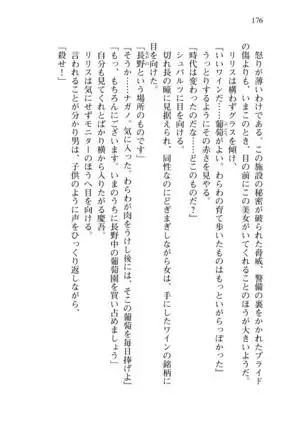 176
怒りが薄いわけである。この施設の秘密が破られた脅威、警備の裏をかかれたプライド
の傷よりも、いまこのとき、目の前にこの美女がいてくれることのほうが大きいようだ。
リリスは構わずグラスを傾け、
「いいワインだ……葡萄がよい。わらわの育て歩いたものはもっといがらっぽかった」
うっとりするようにその赤さを見やる。
「どこのものだ？　どの時代だ？」
シュバルツに目を向ける。
切れ長の瞳に見据えられ、同性なのにどぎまぎしながら女は、手にしたワインの銘柄に
目を向けた。
「長野という場所のものです」
「そうか……ナガノ。気に入った。わらわが肉をうけし後には、そこの葡萄を毎日捧げよ」
「もっ、もちろんにございます。いまのうちに長野中の葡萄園を買い占めましょう」
自分も見てくれとばかり横から入りたがる慶吾。
リリスは気にせずモニターのほうへ目を向ける。
言われることが分かり男は、子供のように声をひっくり返しながら、
「殺せ！」